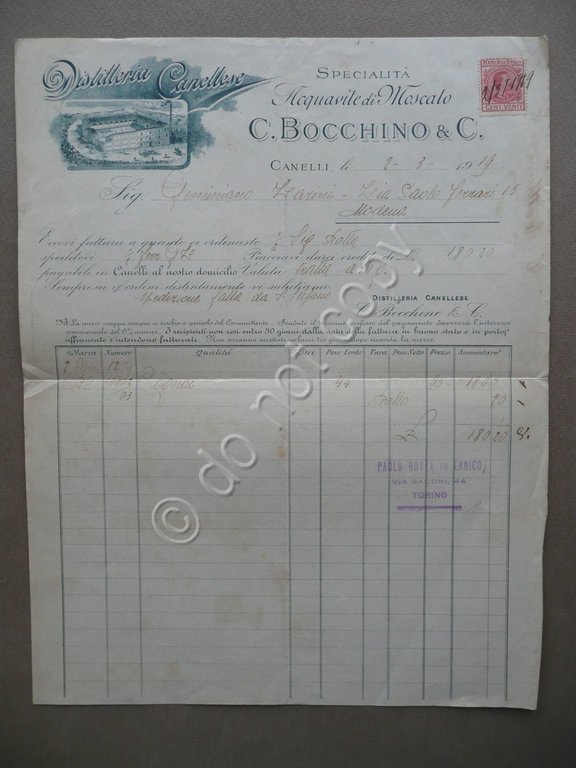 Distilleria Canellese
Specialità
Acquavite di Moscato
C. Bocchino & C.
MARCA DA BOLLO
CENT. VENTI
2/3/1919
Canelli, li 2 - 3 - 1919
Sig. Geminiano Zarini - Via Paolo Ferrari 15
Modena
Eccovi fattura a quanto ci ordinaste Sig. Rotta
speditovi Piacciavi darci credito di L. 180.20
pagabile in Canelli al nostro domicilio Valuta tratta
Sempre ai v/ ordini distintamente vi salutiamo
spedizione fatta da
Distilleria Canellese
C. Bocchino & C.
NB. La merce viaggia sempre a rischio e pericolo del Committente. Scaduto il termine prefisso del pagamento decorrerà l'interesse
commerciale del 6% annuo. I recipienti non resi entro 30 giorni dalla data della fattura in buono stato e in porto
affrancato s'intendono fatturati. Non saranno accettati reclami tre giorni dopo ricevuta la merce.
Marca Numero Qualità Litri Peso Lordo Tara Peso Netto Prezzo Ammontare
2 44 180
93 Bollo 20
L 180.20
PAOLO ROTTA FU ENRICO
VIA SACCHI, 44
TORINO
© do not copy